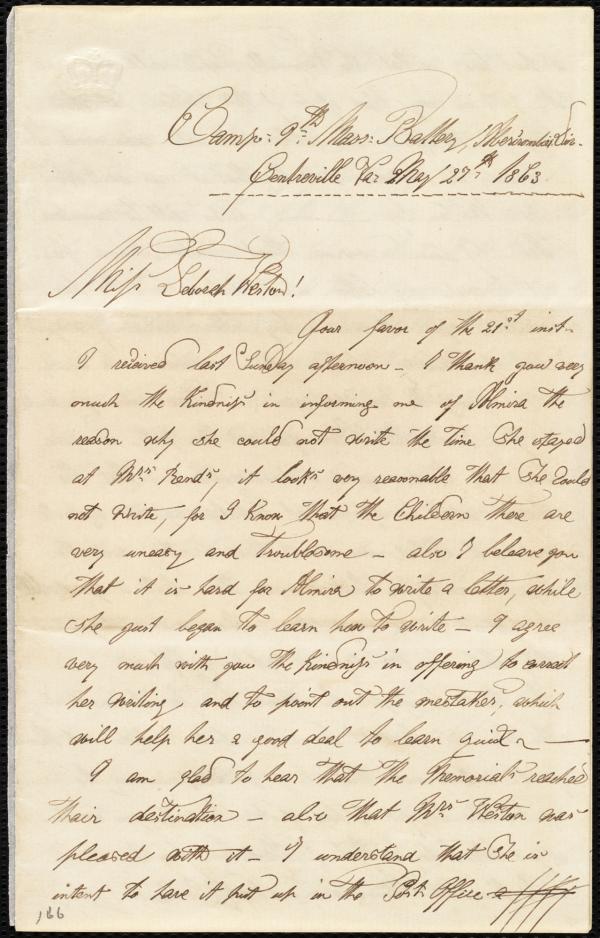 Camp: 9th Mass: Battery, Abercrombie's Div.
Centreville Va: May 27th 1863
Miss Deborah Weston!
Your favor of the 21st inst-
I recieved last Sunday afternoon - I thank you very
much the Kindniss in informing me of Almira the
reason why she could not write the time She stayed
at Mrs Rends, it looks very reasonable that She Could
not write, for I Know that the Children there are
very uneasy and troublesome - also I beleave you
that it is hard for Almira to write a letter, while
She just began to learn how to write - I agree
very much with you the Kindniss in offering to correct
her writing and to point out the mestakes, which
will help her a good deal to learn quick -
I am glad to hear that the Memorials reached
thair destination - also that Mrs Weston was
pleased with it - I understand that She is
intent to have it put up in the Post Office
166